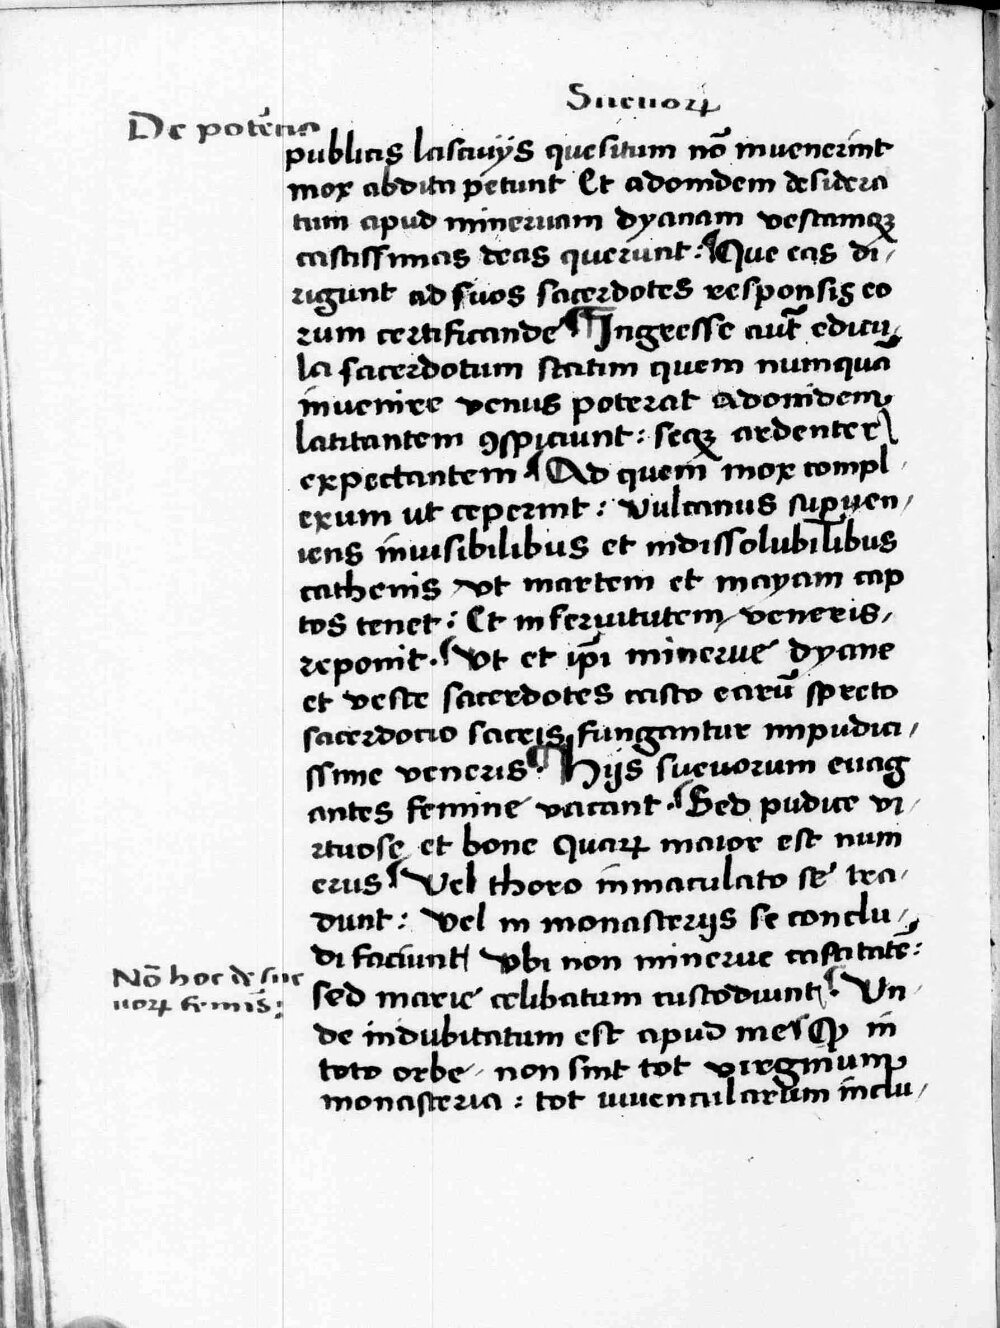 Sueuoꝝ
De potẽtia
publicis lasciuijs quesitum nõ inuenerint
mox abdita petunt Et adonidem desidera
tum apud mineruam dyanam vestamqꝫ
castissimas deas querunt: Que eas di/
rigunt ad suos sacerdotes responsis eo
rum certificande ¶ Ingresse aut̃ edicu/
la sacerdotum statim quem numquã
inuenire venus poterat adonidem
latitantem ꝯspiciunt: seqꝫ ardenter
expectantem Ad quem mox compl/
exum ut ceperint: vulcanus suꝑuen/
iens inuisibilibus et indissolubilibus
cathenis vt martem et mayam cap
tos tenet: Et in seruitutem veneris/
reponit. Vt et ip̃i minerue dyane
et veste sacerdotes casto earũ spreto
sacerdocio sacris fungantur impudici/
ssime veneris. ¶ Hijs sueuorum euag
antes femine vacant. Sed pudice vi/
rtuose et bone quaꝝ maior est num
erus Vel thoro inmaculato se tra/
dunt: Vel in monasterijs se conclu/
di faciunt Vbi non minerue castitatẽ:
sed marie celibatum custodiunt. Vn
de indubitatum est apud me Ꝙ in
toto orbe non sint tot virginum
monasteria: tot iuuencularum inclu/
Nõ hoc de sue
uoꝝ femis̃: